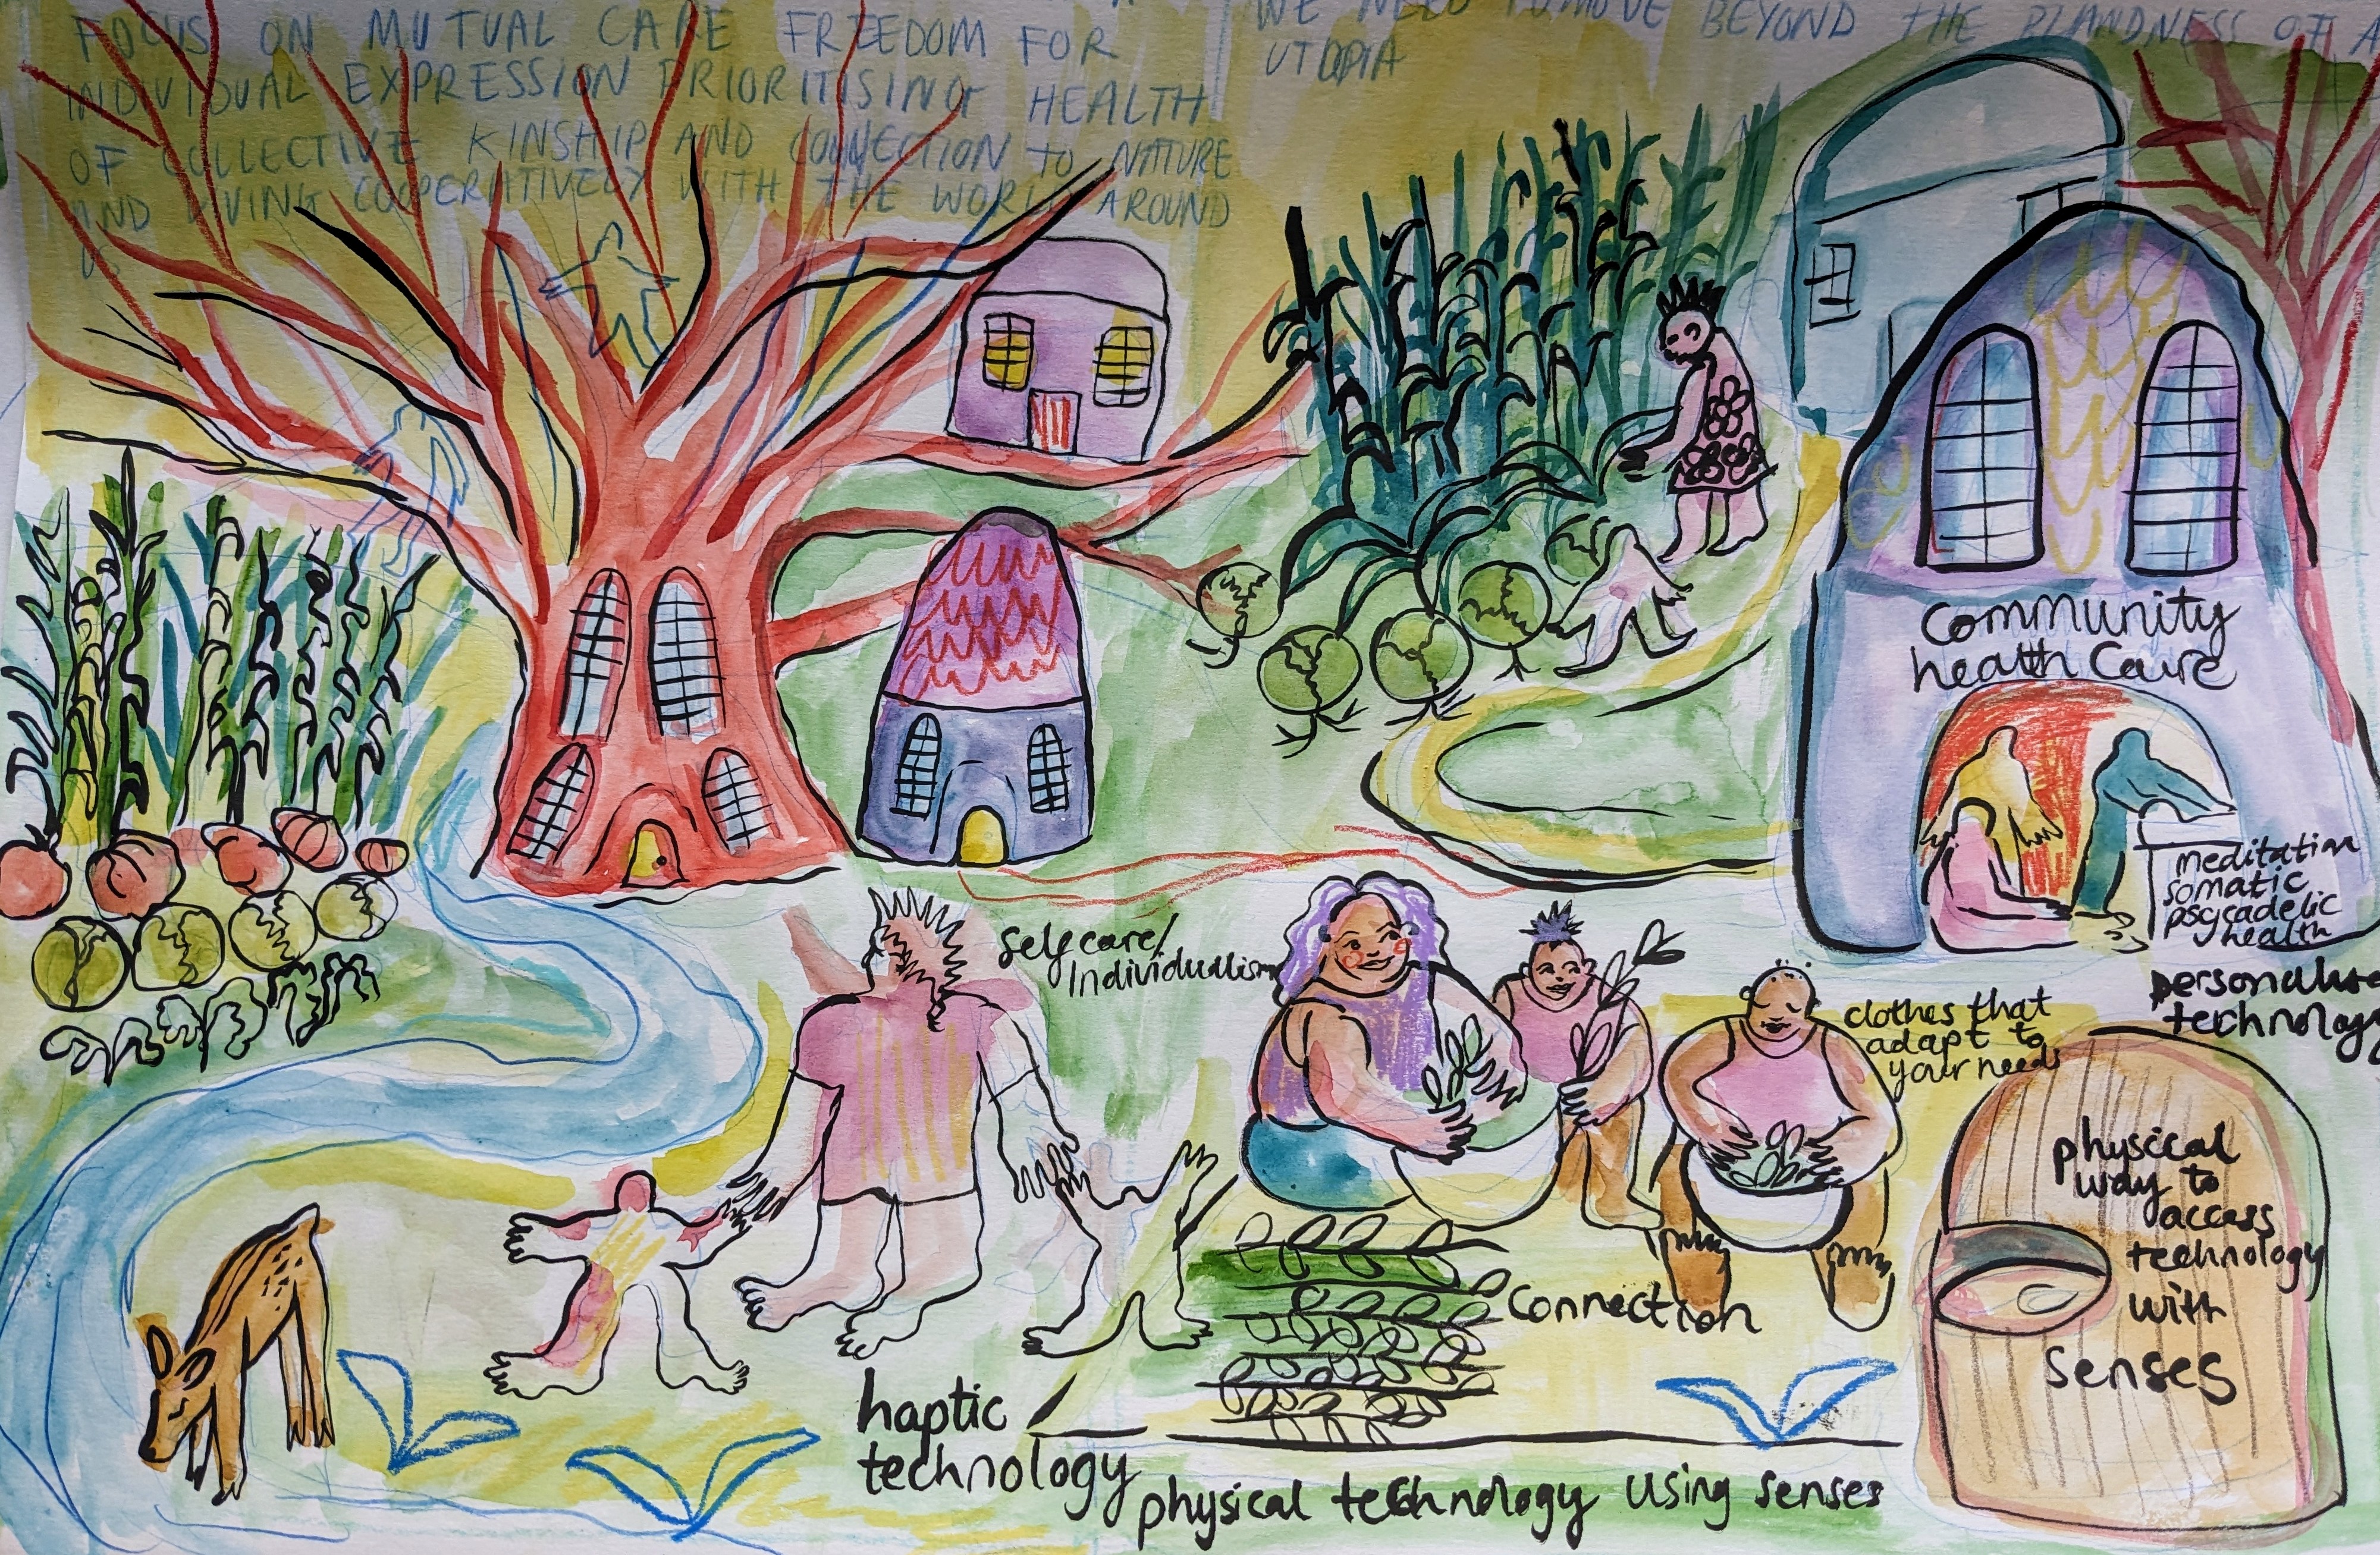 FOCUS ON MUTUAL CARE FREEDOM FOR
INDIVIDUAL EXPRESSION PRIORITISING HEALTH
OF COLLECTIVE KINSHIP AND CONNECTION TO NATURE
AND LIVING COOPERATIVELY WITH THE WORLD AROUND
US
WE NEED TO MOVE BEYOND THE BLANDNESS OF A
UTOPIA
Community
health Care
meditation
somatic
psycadelic
health
Self care/
Individualism
clothes that
adapt to
your needs
personalise
technology
physical
way to
access
technology
with
senses
Connection
haptic
technology
physical technology using senses